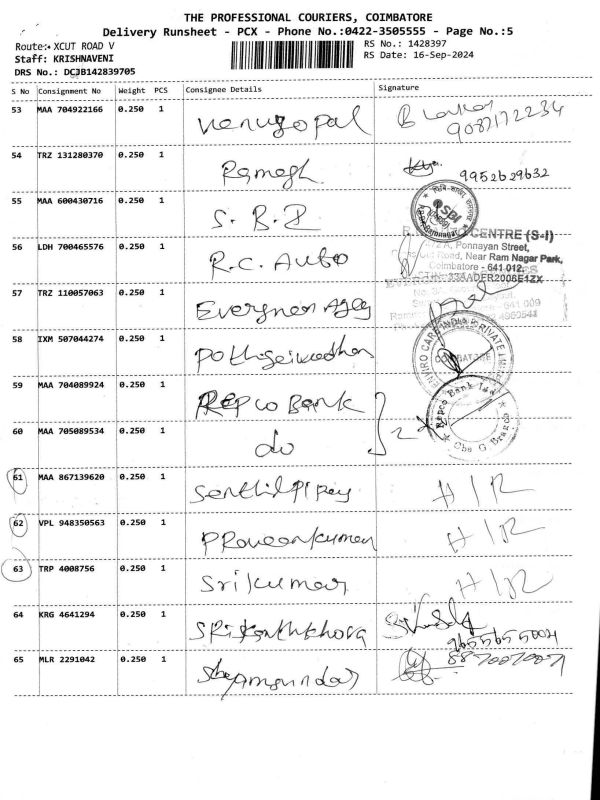 THE PROFESSIONAL COURIERS, COIMBATORE
Delivery Runsheet - PCX - Phone No.:0422-3505555 - Page No.:5
Route:- XCUT ROAD V
RS No.: 1428397
Staff: KRISHNAVENI
RS Date: 16-Sep-2024
DRS No.: DCJB142839705
S No Consignment No Weight PCS Consignee Details Signature
53 MAA 704922166 0.250 1 Venugopal
9087172234
54 TRZ 131280370 0.250 1 Ramesh 9952629632
55 MAA 600430716 0.250 1 S. B. I
SBI
CENTRE (S-I)
Ponnayan Street,
Road, Near Ram Nagar Park,
56 LDH 700465576 0.250 1 R.C. Auto
Coimbatore - 641 012
57 TRZ 110057063 0.250 1 Evergreen Agey
641 009
58 IXM 507044274 0.250 1
ENVIRO CARE INDIA PRIVATE
COIMBATORE
59 MAA 704089924 0.250 1 Repco Bank
Repco Bank Ltd
Cbe G Branch
60 MAA 705089534 0.250 1 do
61 MAA 867139620 0.250 1 H/R
62 VPL 948350563 0.250 1 Praveenkumar H/R
63 TRP 4008756 0.250 1 Srikumar H/R
64 KRG 4641294 0.250 1
9655655004
65 MLR 2291042 0.250 1 Shyamsundar